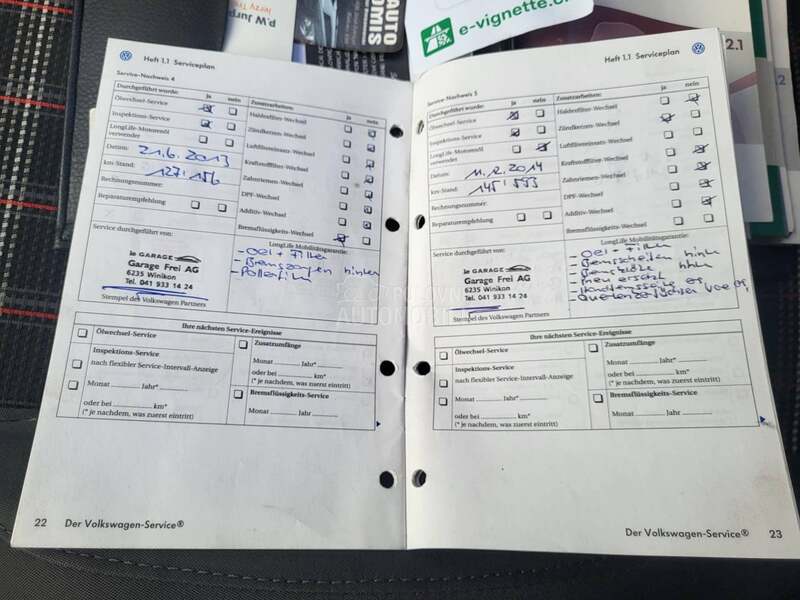 P.W Jurp
Jerzy Tre
AUTO
OMIS
e-vignette.
2.1
2
Heft 1.1 Serviceplan
Service-Nachweis 4
Durchgeführt wurde: ja nein
Ölwechsel-Service
Inspektions-Service
LongLife-Motorenöl
verwendet
Datum: 21.6.2013
km-Stand: 127'156
Rechnungsnummer:
Reparaturempfehlung
Zusatzarbeiten: ja nein
Haldexfilter-Wechsel
Zündkerzen-Wechsel
Luftfiltereinsatz-Wechsel
Kraftstofffilter-Wechsel
Zahnriemen-Wechsel
DPF-Wechsel
Additiv-Wechsel
Bremsflüssigkeits-Wechsel
Service durchgeführt von:
le GARAGE
Garage Frei AG
6235 Winikon
Tel. 041 933 14 24
Stempel des Volkswagen Partners
LongLife Mobilitätsgarantie:
- Oel + Filter
- Bremszangen hinten
- Pollenfilter
Ihre nächsten Service-Ereignisse
Ölwechsel-Service
Inspektions-Service
nach flexibler Service-Intervall-Anzeige
Monat Jahr*
oder bei km*
(* je nachdem, was zuerst eintritt)
Zusatzumfänge
Monat Jahr*
oder bei km*
(* je nachdem, was zuerst eintritt)
Bremsflüssigkeits-Service
Monat Jahr
22 Der Volkswagen-Service®
Heft 1.1 Serviceplan
Service-Nachweis 5
Durchgeführt wurde: ja nein
Ölwechsel-Service
Inspektions-Service
LongLife-Motorenöl
verwendet
Datum: 11.12.2014
km-Stand: 145'593
Rechnungsnummer:
Reparaturempfehlung
Zusatzarbeiten: ja nein
Haldexfilter-Wechsel
Zündkerzen-Wechsel
Luftfiltereinsatz-Wechsel
Kraftstofffilter-Wechsel
Zahnriemen-Wechsel
DPF-Wechsel
Additiv-Wechsel
Bremsflüssigkeits-Wechsel
Service durchgeführt von:
le GARAGE
Garage Frei AG
6235 Winikon
Tel. 041 933 14 24
Stempel des Volkswagen Partners
LongLife Mobilitätsgarantie:
- Oel + Filter
- Bremsscheiben hinten
- Bremsklötze hinten
Ihre nächsten Service-Ereignisse
Ölwechsel-Service
Inspektions-Service
nach flexibler Service-Intervall-Anzeige
Monat Jahr*
oder bei km*
(* je nachdem, was zuerst eintritt)
Zusatzumfänge
Monat Jahr*
oder bei km*
(* je nachdem, was zuerst eintritt)
Bremsflüssigkeits-Service
Monat Jahr
Der Volkswagen-Service® 23